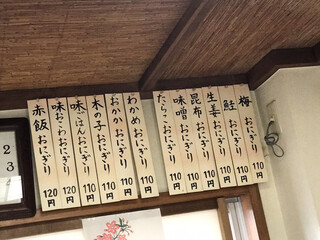 梅 おにぎり 110円
鮭 おにぎり 110円
生姜 おにぎり 110円
昆布 おにぎり 110円
味噌 おにぎり 110円
たらこ おにぎり 110円
わかめ おにぎり 110円
おかか おにぎり 110円
木の子 おにぎり 110円
味ごはん おにぎり 110円
味おこわ おにぎり 120円
赤飯 おにぎり 120円
2
3